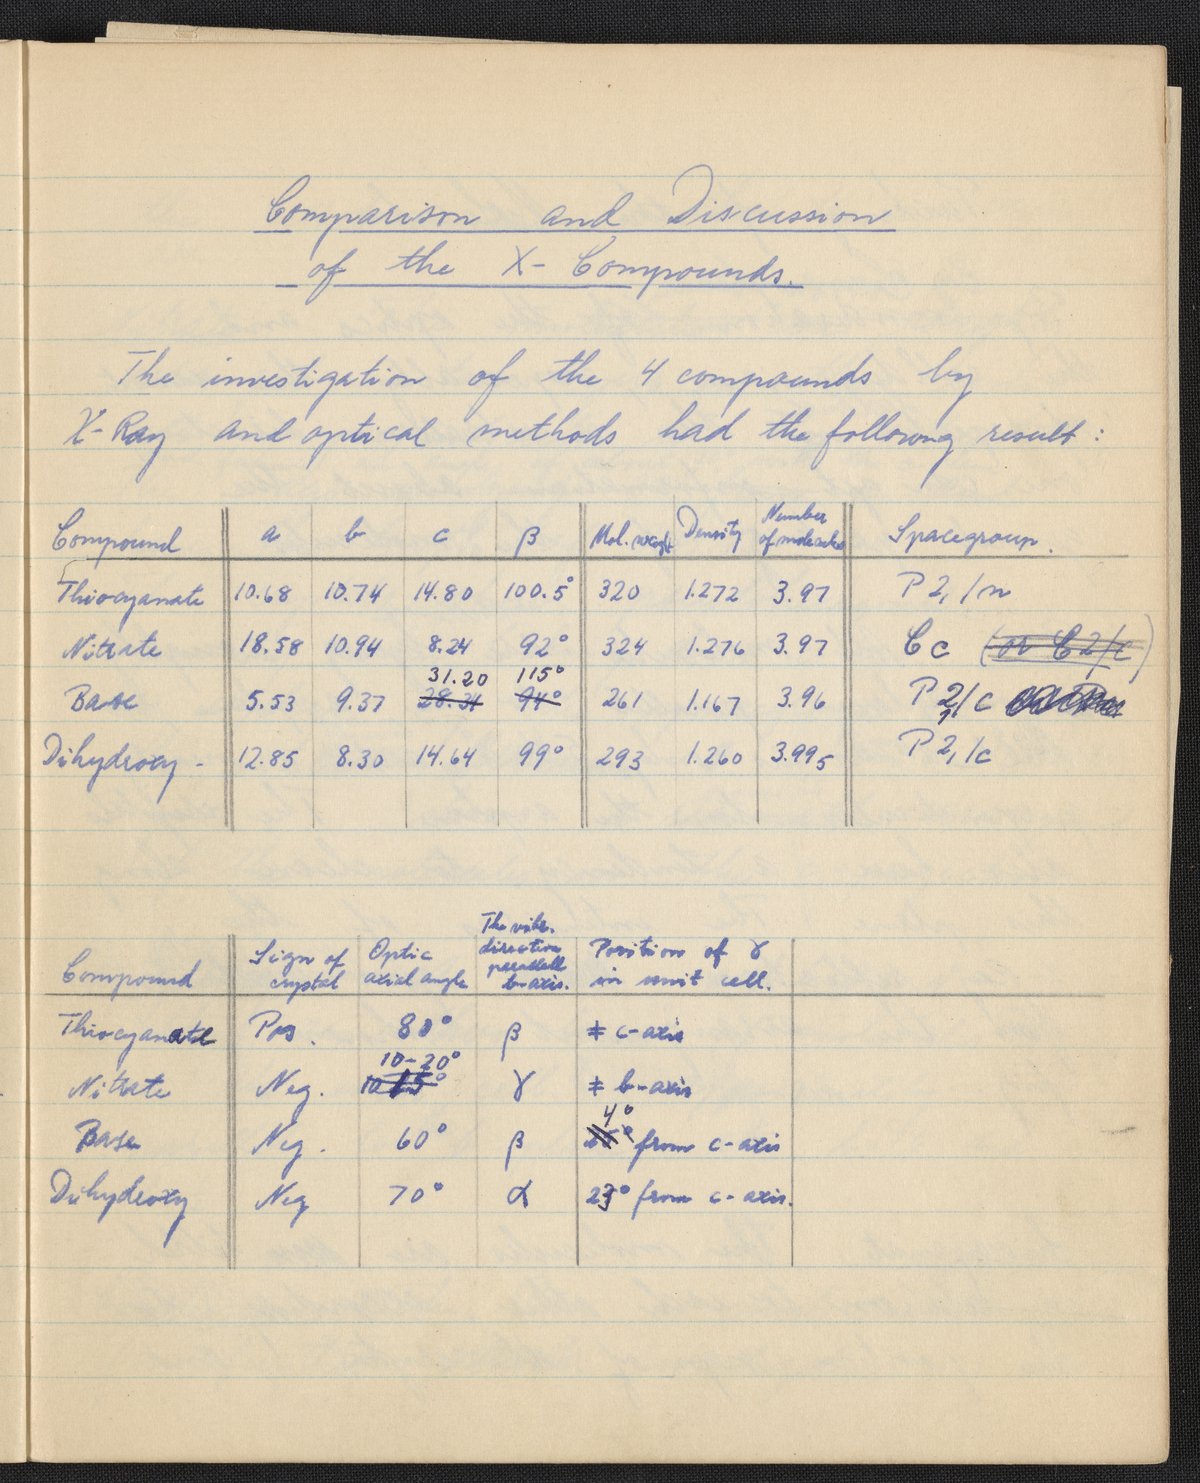 Comparison and Discussion
of the X- Compounds.
The investigation of the 4 compounds by
X-Ray and optical methods had the following result :
Compound a b c β Mol. weight Density Number of molecules Spacegroup.
Thiocyanate 10.68 10.74 14.80 100.5° 320 1.272 3.97 P 2₁/n
Nitrate 18.58 10.94 8.24 92° 324 1.276 3.97 Cc (or C2/c)
31.20 115°
Base 5.53 9.37 28.31 94° 261 1.167 3.96 P 2₁/c
Dihydroxy - 12.85 8.30 14.64 99° 293 1.260 3.995 P 2₁/c
Compound Sign of crystal Optic axial angle The vibr. direction parallell b-axis. Position of γ in unit cell.
Thiocyanate Pos. 80° β ≠ c-axis
10-20°
Nitrate Neg. 10-15° γ ≠ b-axis
4°
Base Neg. 60° β from c-axis
Dihydroxy Neg 70° α 23° from c-axis.